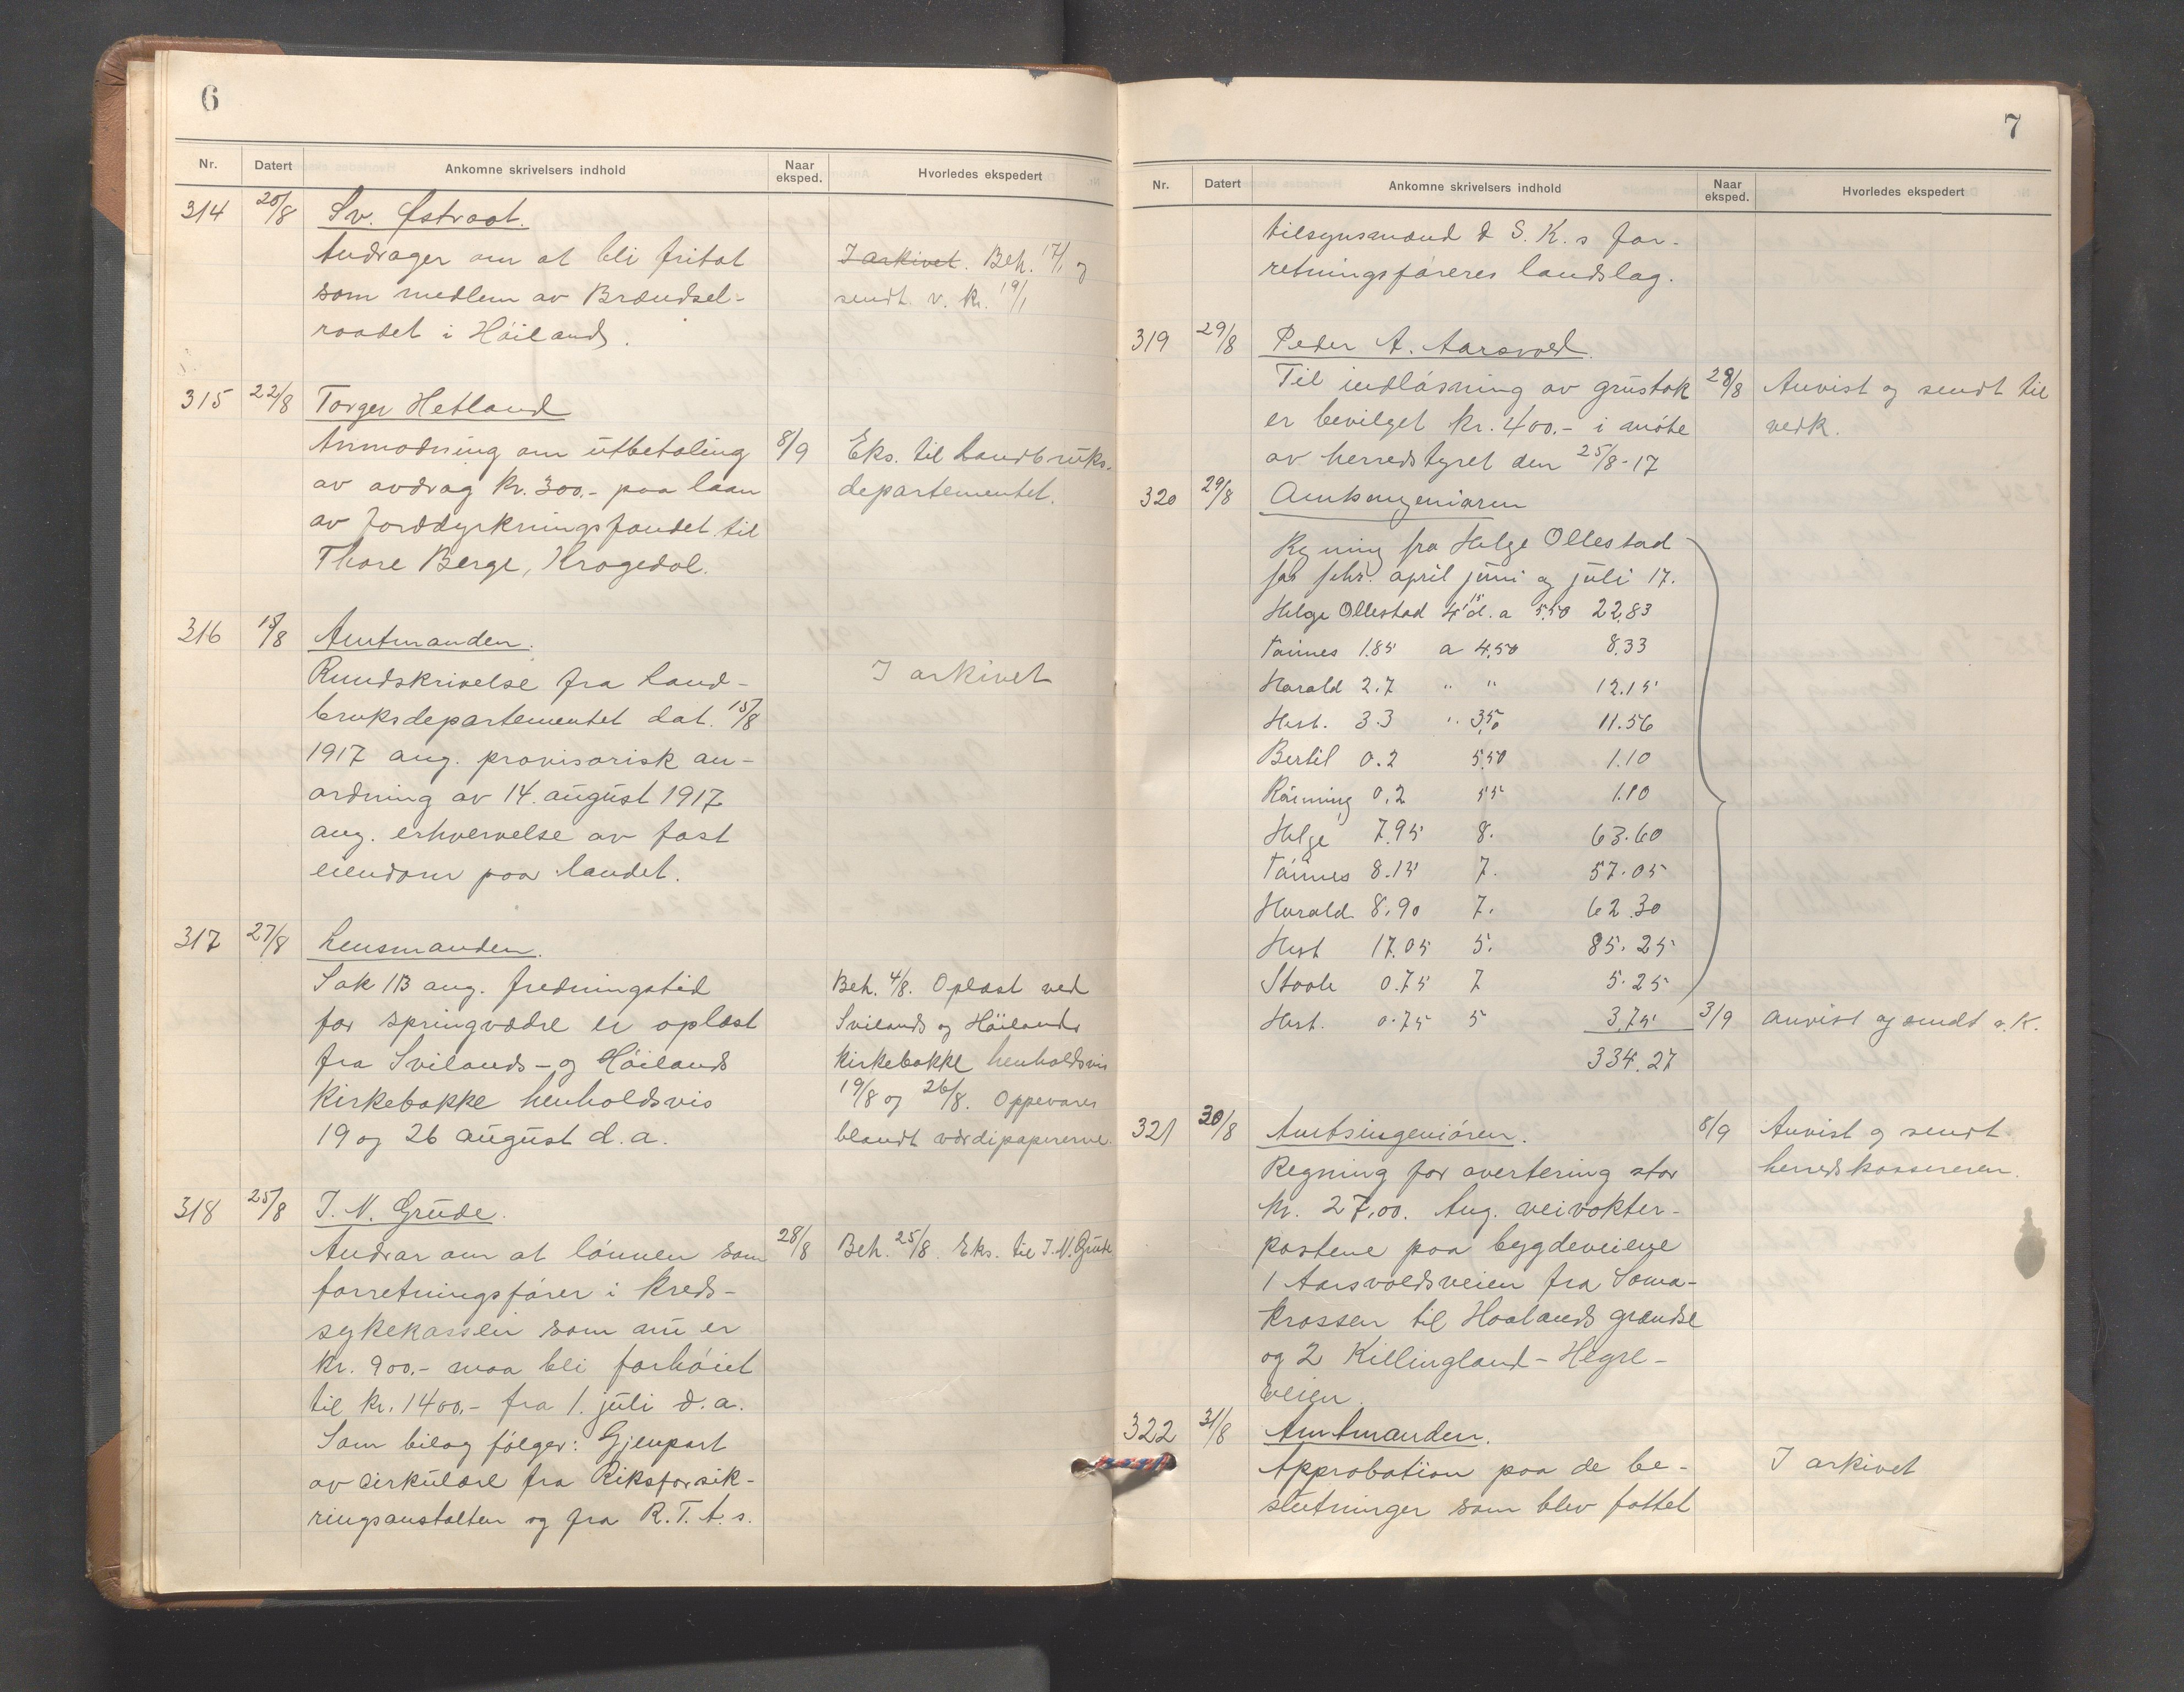 6
Nr. Datert Ankomne skrivelsers indhold Naar eksped. Hvorledes ekspedert
314 20/8 Sv. Østraat.
Andrager om at bli fritat I arkivet. Beh. 17/1 og
som medlem av Brændsel- sendt v. kr. 19/1
raadet i Höiland.
315 22/8 Torger Hetland
Anmodning om utbetaling 8/9 Eks. til Landbruks-
av avdrag kr. 300.- paa laan departementet.
av Jorddyrkningsfondet til
Thore Berge, Krogedal.
316 18/8 Amtmanden.
Rundskrivelse fra Land- I arkivet
bruksdepartementet dat. 15/8
1917 ang. provisorisk an-
ordning av 14. august 1917
ang. erhvervelse av fast
eiendom paa landet.
317 27/8 Lensmanden.
Sak 113 ang. fredningstid Beh. 4/8. Oplæst ved
for springvædre er oplæst Svilands og Höilands
fra Svilands- og Höilands kirkebakke henholdsvis
Kirkebakke henholdsvis 19/8 og 26/8. Oppevares
19 og 26 august d.a. blandt værdipapirerne.
318 25/8 I. N. Grude.
Andrar om at lönnen som 28/8 Beh. 25/8. Eks. til I. N. Grude
forretningsförer i kreds-
sykekassen som nu er
kr. 900.- maa bli forhöiet
til kr. 1400.- fra 1. juli d.a.
Som bilag fölger: Gjenpart
av cirkulære fra Riksforsik-
ringsanstalten og fra R.T.A.s.
7
Nr. Datert Ankomne skrivelsers indhold Naar eksped. Hvorledes ekspedert
tilsynsmænd & S.K.s for-
retningsföreres landslag.
319 29/8 Peder A. Aarsvold.
Til indlösning av grustak 28/8 Anvist og sendt til
er bevilget kr. 400.- i möte vedk.
av herredstyret den 25/8-17
320 29/8 Amtsingeniören
Regning fra Helge Ollestad
for febr. april juni og juli 17.
Helge Ollestad 4,15 d. a 5.50 22.83
Tönnes 1.85 a 4.50 8.33
Harald 2.7 " " 12.15
Hest. 3.3 " 3.50 11.56
Bertil 0.2 5.50 1.10
Rönning 0.2 55 1.10
Helge 7.95 8. 63.60
Tönnes 8.15 7. 57.05
Harald 8.90 7. 62.30
Hest 17.05 5. 85.25
Stoole 0.75 7 5.25
Hest. 0.75 5 3.75 3/9 Anvist og sendt v. K.
334.27
321 30/8 Amtsingeniören. 8/9 Anvist og sendt
Regning for avertering stor herredskassereren.
kr. 27.00. Ang. veivokter-
postene paa bygdeveiene
1 Aarsvoldsveien fra Soma-
krossen til Hoolands grændse
og 2 Killingland-Hegre-
veien.
322 31/8 Amtmanden.
Approbation paa de be- I arkivet
slutninger som blev fattet